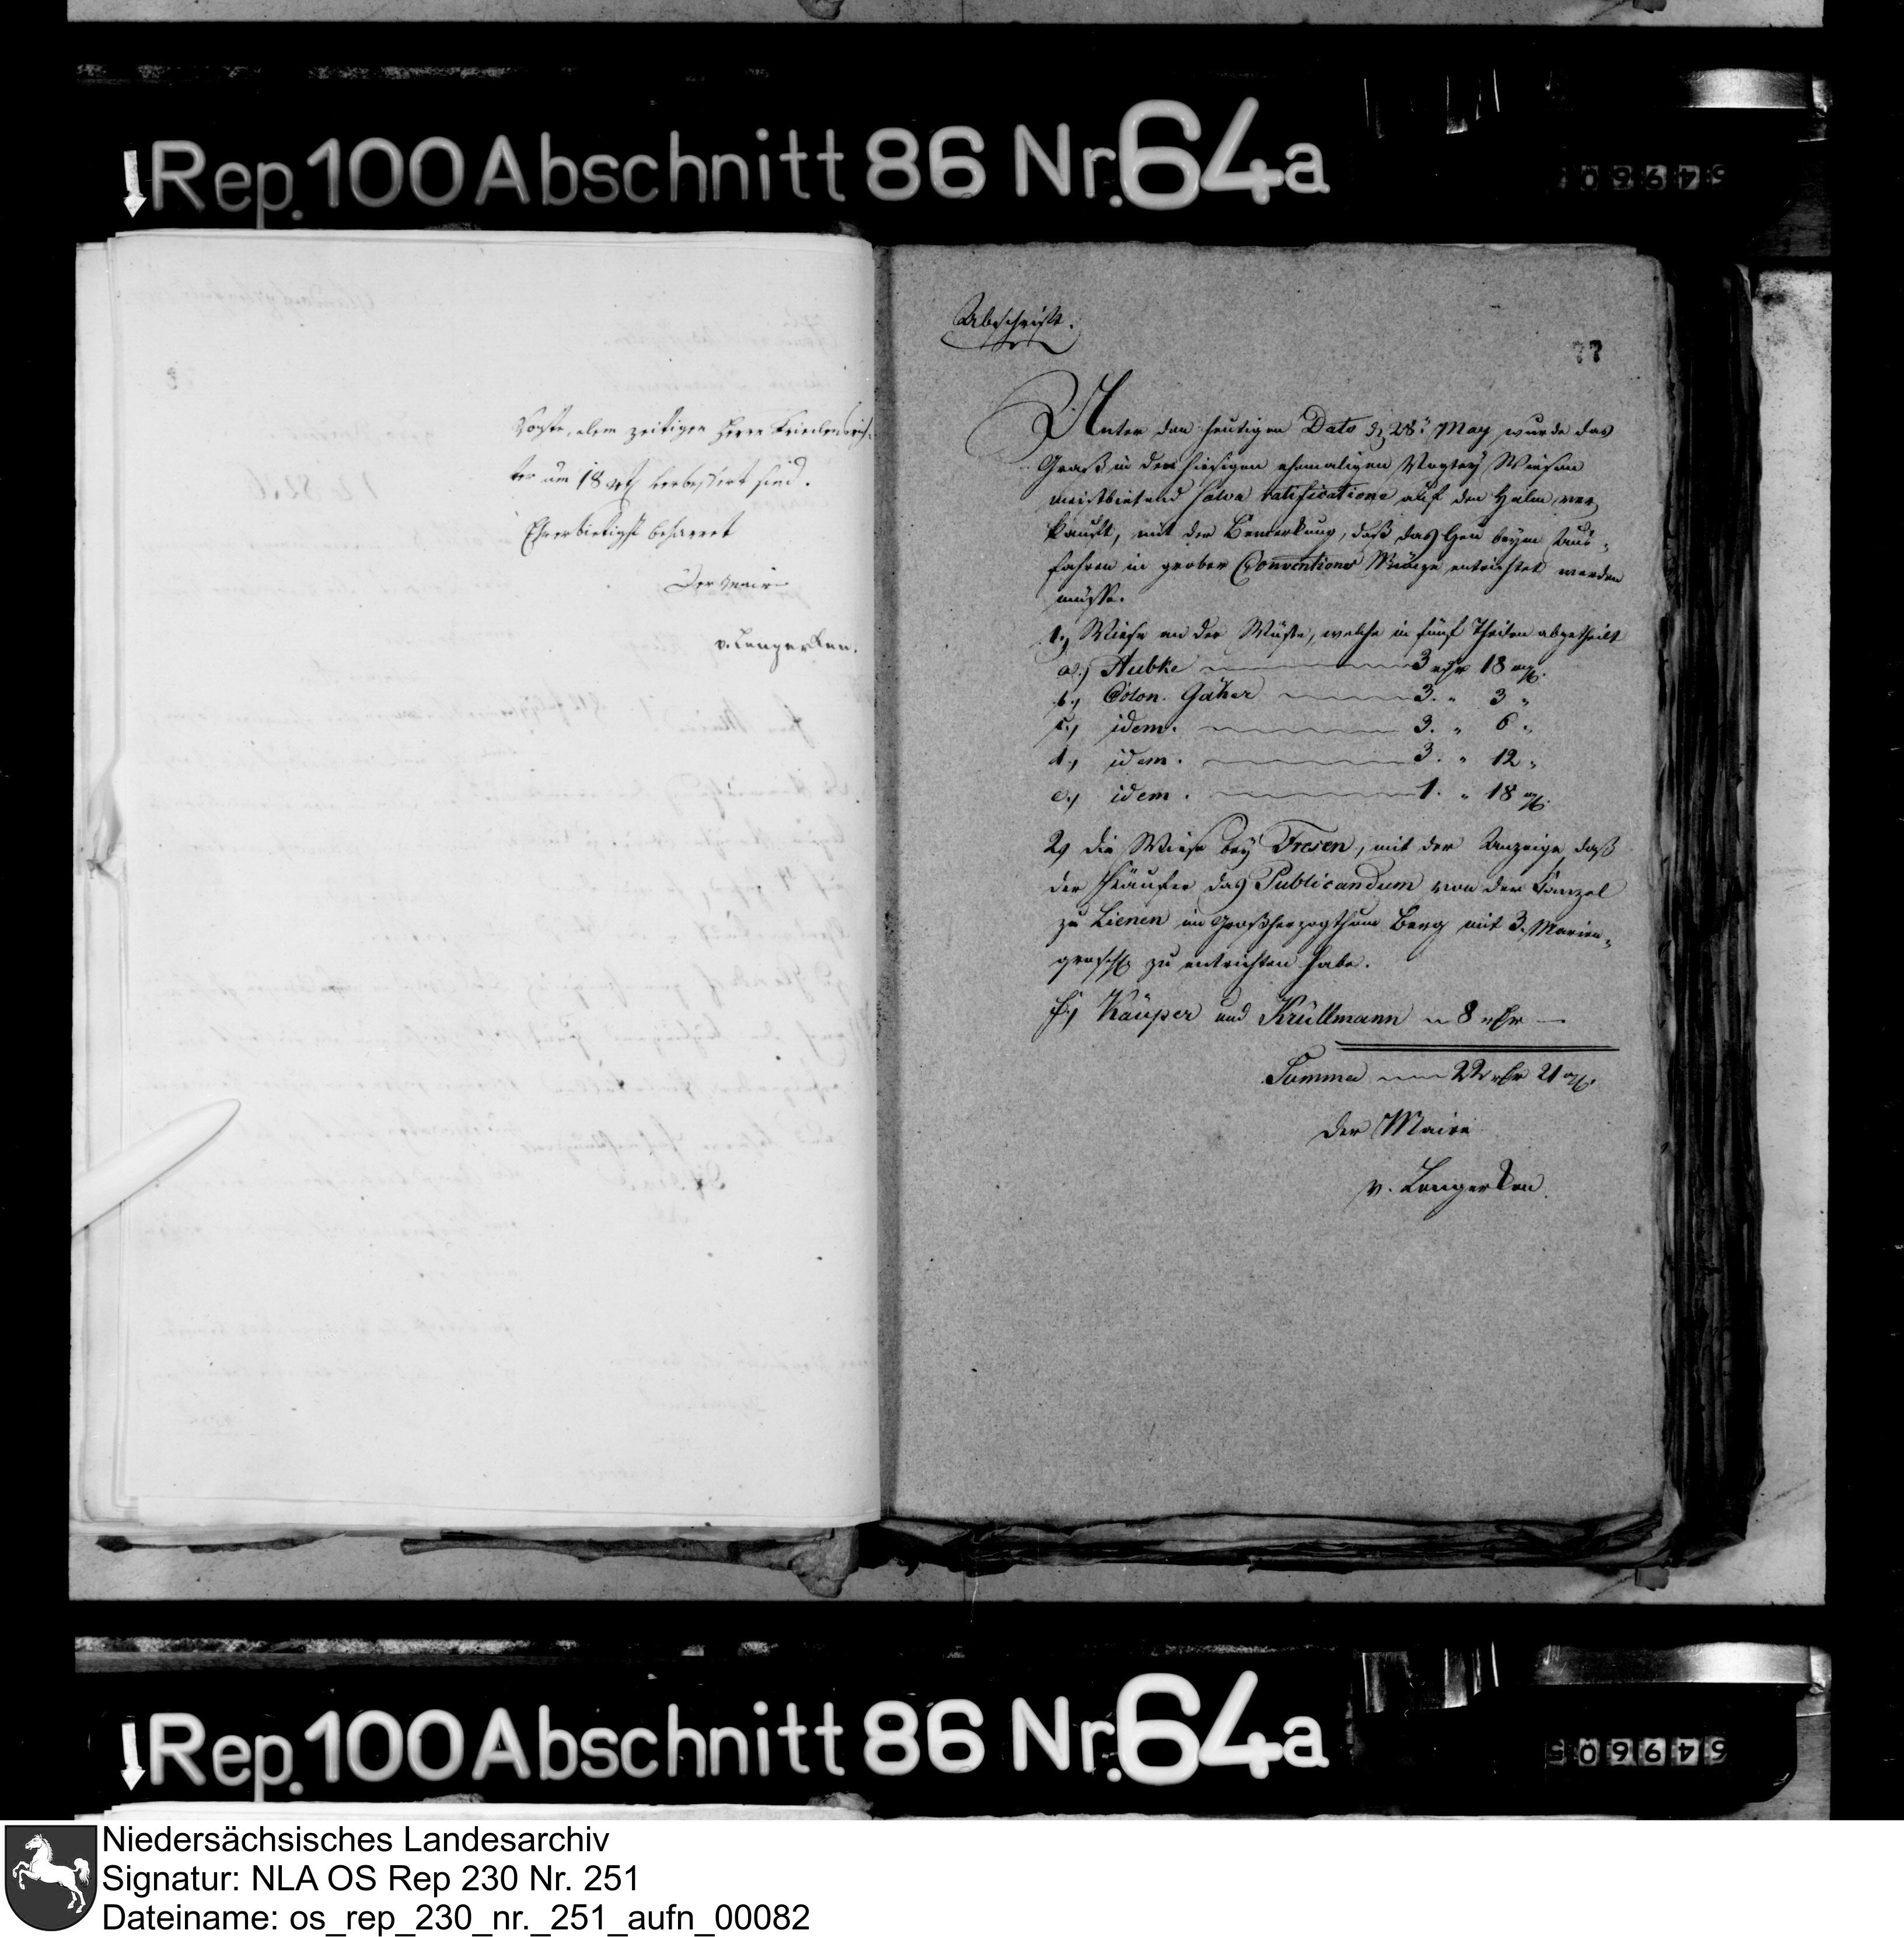 Rep. 100 Abschnitt 86 Nr. 64a
649605
Vogte, dem zeitigen Herrn Friedensrich-
ter um 18 verbessert sind.
Ehrerbietigst beharret
Der Maire
v. Lengerken.
Abschrift.
77
Unter den heutigen Dato d. 28t May wurde das
Graß in den hiesigen ehemaligen Vogtey Wiesen
meistbietend salva ratificatione auf den Halm ver
kauft, mit der Bemerkung, daß das Heu beym Aus-
fahren in grober Conventions Münze entrichtet werden
müsse.
1.) Wiese an der Wüste, welche in fünf Theilen abgetheilt
a.) Hubke 3 rthr 18 mg.
b.) Colon. Gäher 3. " 3 "
c.) idem. 3. " 6 "
d.) idem. 3. " 12 "
e.) idem. 1. " 18 mg.
2) die Wiese bey Fresen, mit der Anzeige daß
der Käufer das Publicandum von der Kanzel
zu Lienen im Großherzogthum Berg mit 3. Marien-
grosch zu entrichten habe.
f.) Käuper und Krüllmann 8 rthr —
Summa 22 rthr 21 mg.
Der Maire
v. Lengerken.
Rep. 100 Abschnitt 86 Nr. 64a
649605
Niedersächsisches Landesarchiv
Signatur: NLA OS Rep 230 Nr. 251
Dateiname: os_rep_230_nr._251_aufn_00082